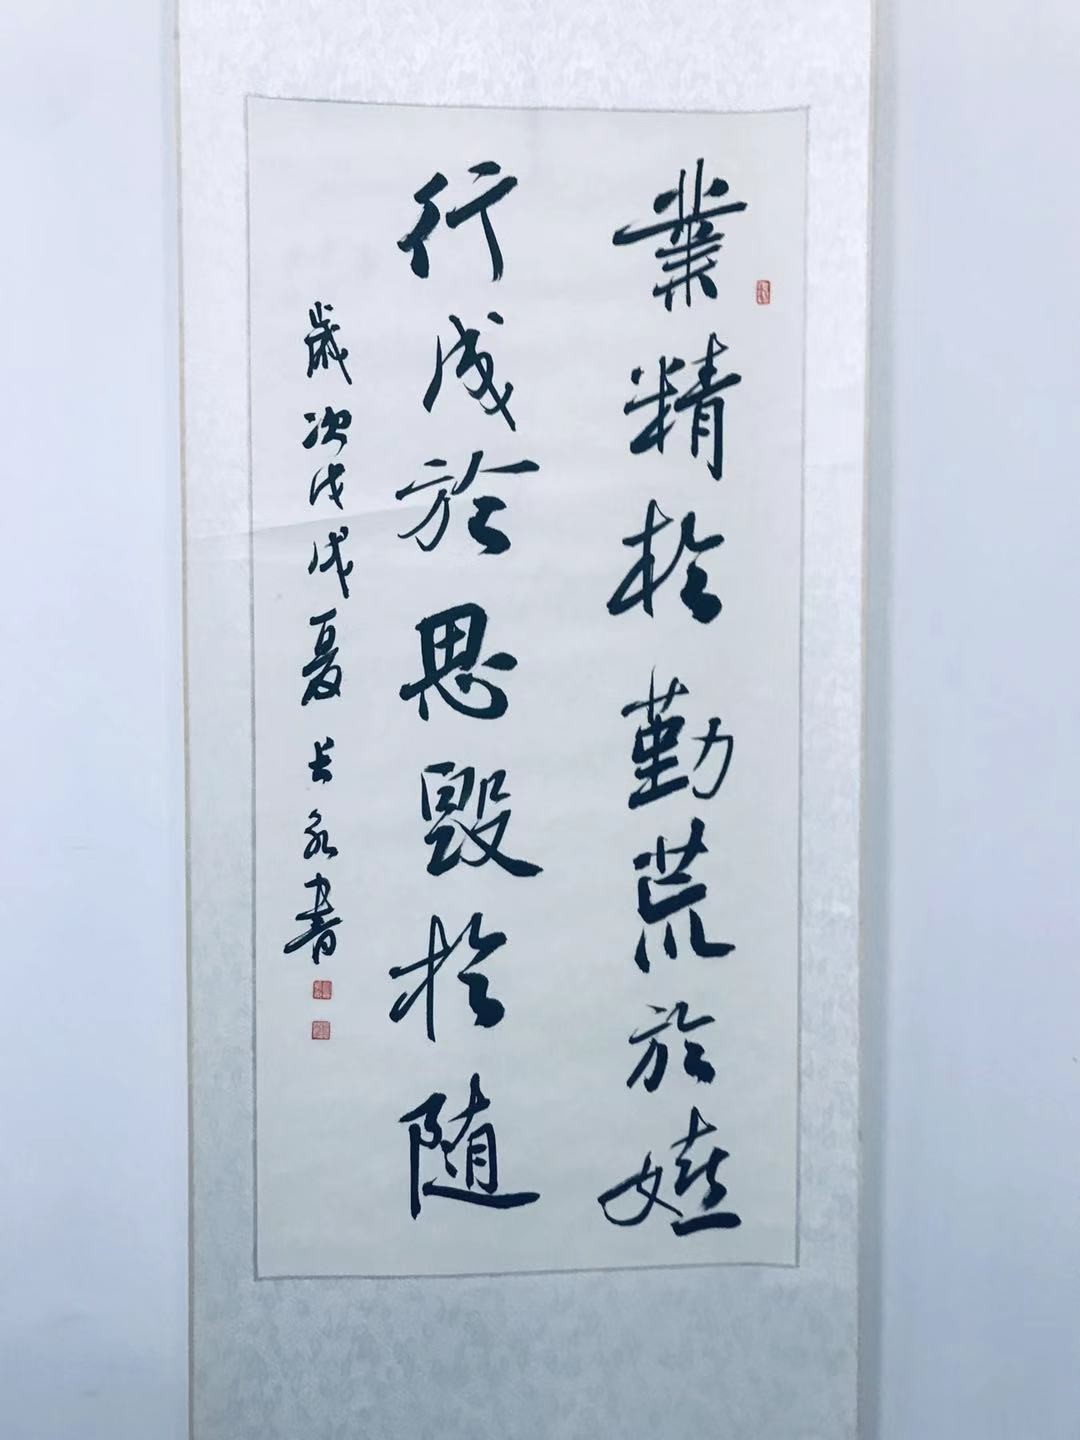 業精於勤荒於嬉
行成於思毀於随
歲次戊戌夏長永書